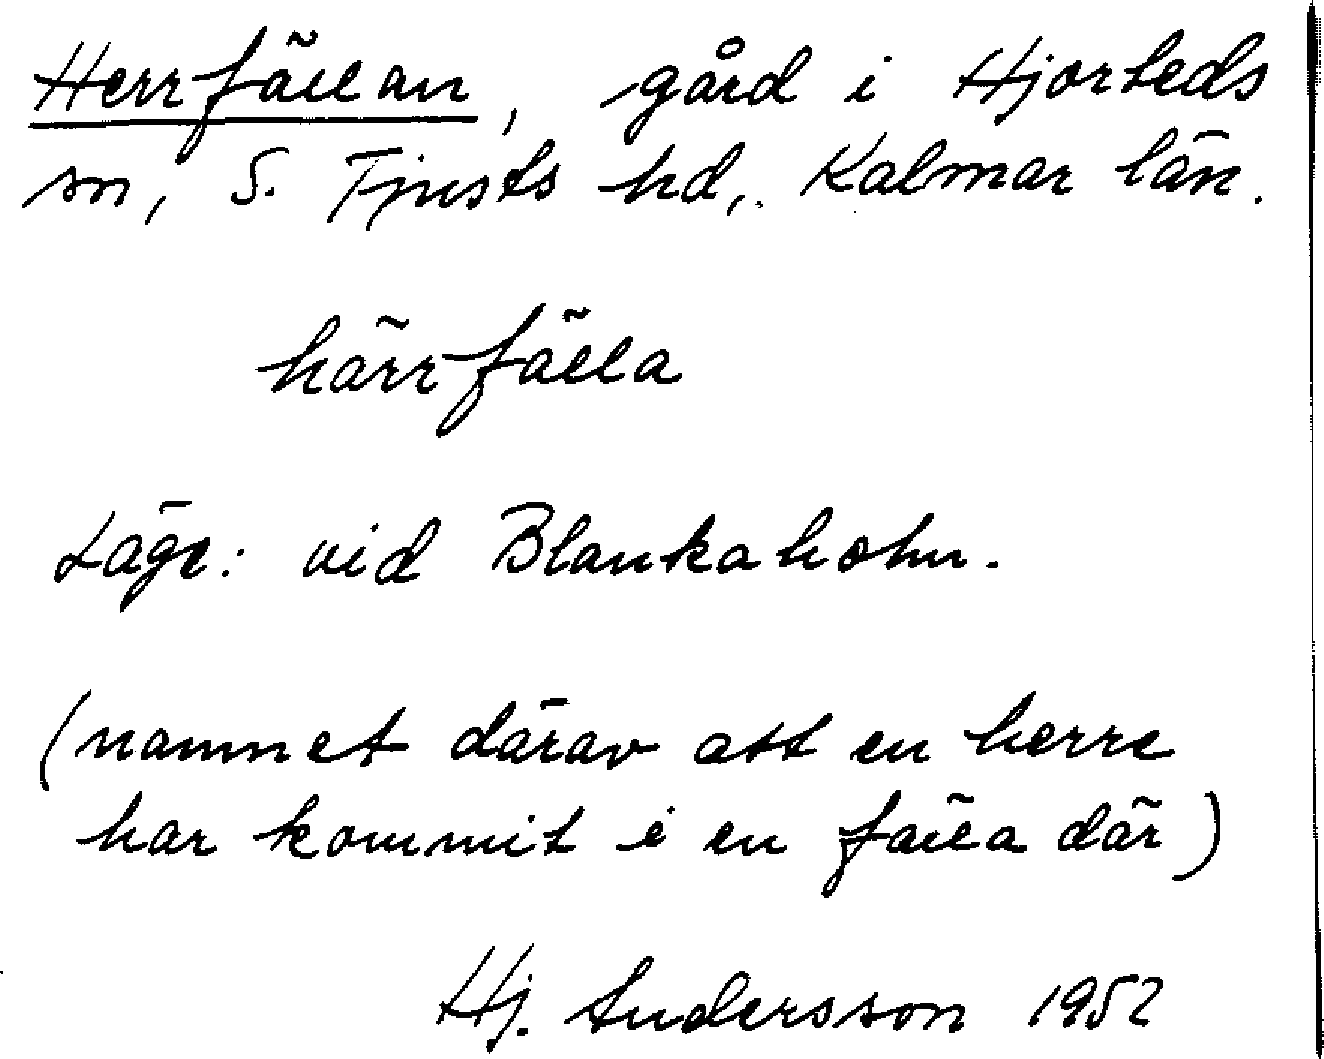 Herrfällan, gård i Hjorteds
sn, S. Tjusts hd, Kalmar län.
härrfälla
Läge: vid Blankaholm.
(namnet därav att en herre
har kommit i en fälla där)
Hj. Andersson 1952